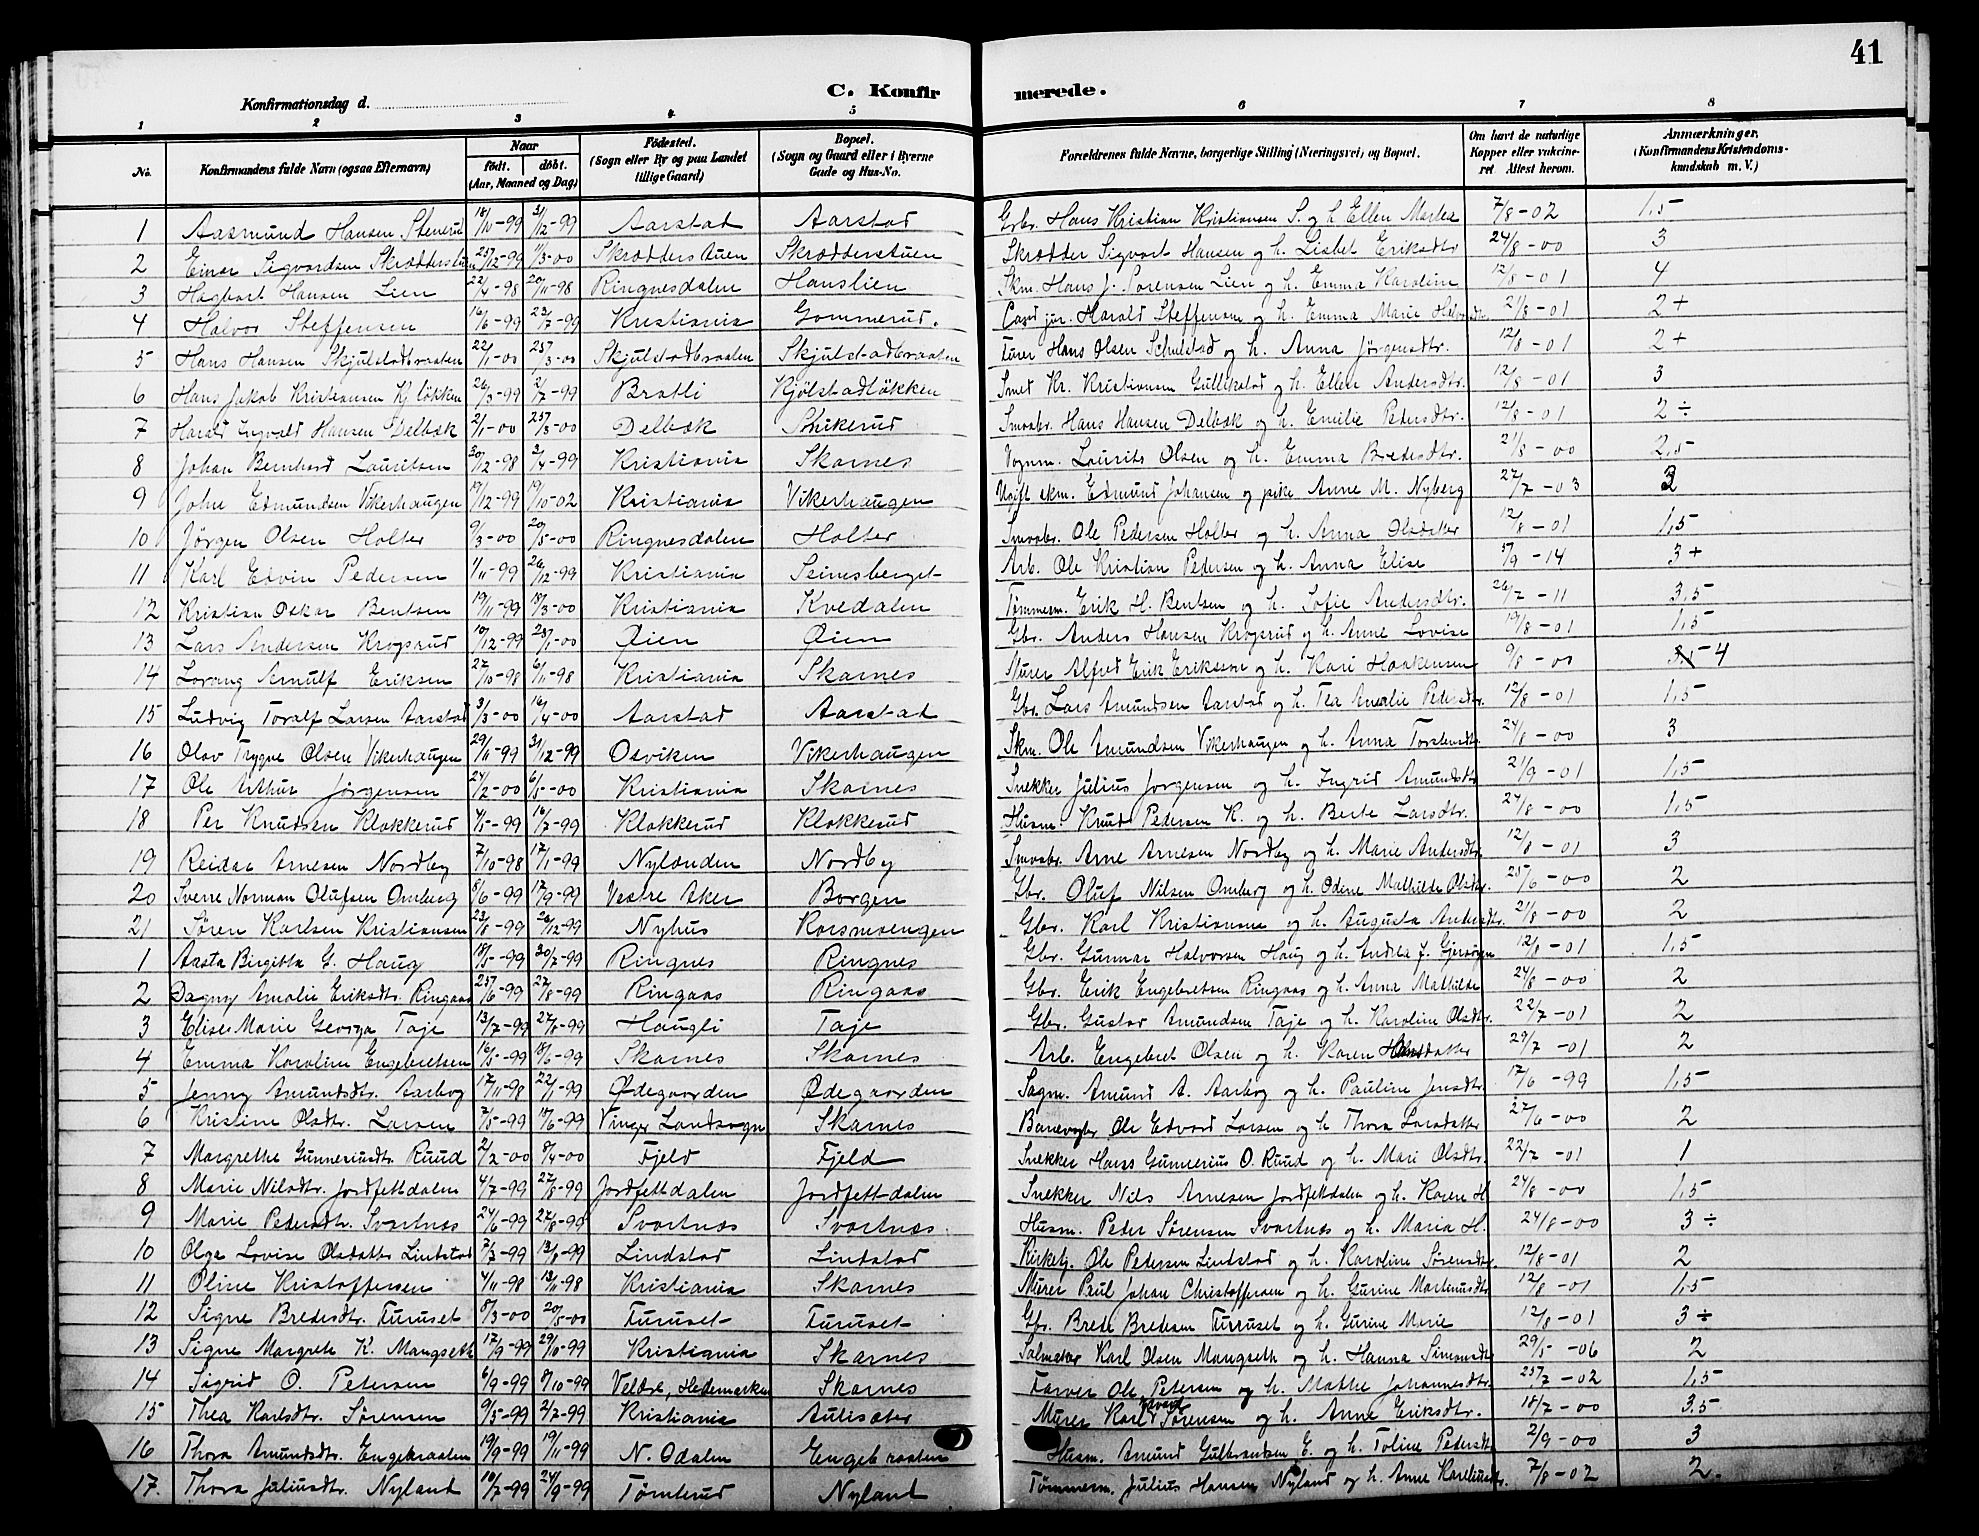 41
C. Konfirmerede.
Konfirmationsdag d.
1 2 3 4 5 6 7 8
No. Konfirmandens fulde Navn (ogsaa Efternavn) Naar født. døbt. (Aar, Maaned og Dag) Fødested. (Sogn eller By og paa Landet tillige Gaard) Bopæl. (Sogn og Gaard eller i Byerne Gade og Hus-No. Forældrenes fulde Navne, borgerlige Stilling (Næringsvei) og Bopæl. Om havt de naturlige Kopper eller vakcineret Attest herom. Anmærkninger. (Konfirmandens Kristendomskundskab m. V.)
1 Aasmund Hansen Stenerud 18/10-99 31/12-99 Aarstad Aarstad Gbr. Hans Kristian Kristiansen S. og h. Ellen Martea 7/8-02 1,5
2 Einar Sigvardsen Skrædderstuen 25/12-99 11/3-00 Skrædderstuen Skrædderstuen Skrædder Sigvart Hansen og h. Lisbet Eriksdtr 24/8-00 3
3 Hagbart Hansen Lien 22/4-98 20/11-98 Ringnesdalen Hanslien Skm. Hans J. Sørensen Lien og h. Emma Karoline 12/8-01 4
4 Halvor Steffensen 16/6-99 23/7-99 Kristiania Gommerud. jur. Harald Steffensen og h. Emma Marie 21/8-01 2+
5 Hans Hansen Skjulstadbraaten 22/1-00 25/3-00 Skjulstadbraaten Skjulstadbraaten Hans Olsen og h. Anna Jørgensdtr. 12/8-01 2+
6 Hans Jakob Kristiansen Kj.løkken 26/3-99 2/7-99 Bratli Kjølstadløkken Smed Kr. Kristiansen Gullikstad og h. Ellen Andersdtr. 12/8-01 3
7 Harald Ingvald Hansen Delbæk 2/1-00 25/3-00 Delbæk Smaabr. Hans Hansen Delbæk og h. Emilie Pedersdtr. 12/8-01 2÷
8 Johan Bernhard Lauritsen 30/12-98 2/4-99 Kristiania Skarnes Vognm. Laurits Olsen og h. Emma Bredesdtr. 21/8-00 2,5
9 John Edmundsen Vikerhaugen 17/12-99 19/10-02 Kristiania Vikerhaugen Ugift skm. Edmund Johansen og pike Anne M. Nyberg 27/7-03 3
10 Jørgen Olsen Holter 9/3-00 20/5-00 Ringnesdalen Holter Smaabr. Ole Pedersen Holter og h. Anna Olsdatter 12/8-01 1,5
11 Karl Edvin Pedersen 1/11-99 26/12-99 Kristiania Seinesberget Arb. Ole Kristian Pedersen og h. Anna Elise 5/9-14 3+
12 Kristian Oskar Bentsen 19/11-99 18/3-00 Kristiania Kvedalen Tømmerm. Erik H. Bentsen og h. Sofie Andersdtr. 26/7-11 3,5
13 Lars Andersen Krogsrud 10/12-99 28/1-00 Øien Øien Gbr. Anders Hansen Krogsrud og h. Anne Lovise 19/8-01 1,5
14 Lorang Arnulf Eriksen 27/10-98 6/11-98 Kristiania Skarnes Murer Alfred Erik Eriksen og h. Kari Haakensen 9/8-00 3,5 4
15 Ludvig Toralf Larsen Aarstad 3/3-00 16/4-00 Aarstad Aarstad Gbr. Lars Amundsen Aarstad og h. Tea Amalie Pedersdtr. 12/8-01 1,5
16 Olav Trygve Olsen Vikerhaugen 29/11-99 31/12-99 Osviken Vikerhaugen Skm. Ole Amundsen Vikerhaugen og h. Anna Torstensdtr 24/8-00 3
17 Ole Arthur Jørgensen 24/2-00 6/5-00 Kristiania Skarnes Snekker Julius Jørgensen og h. Ingrid Amundsdtr 21/9-01 1,5
18 Per Knudsen Klokkerud 4/5-99 16/7-99 Klokkerud Klokkerud Husm. Knud Pedersen K. og h. Berte Larsdtr. 24/8-00 1,5
19 Reidar Arnesen Nordby 7/10-98 17/1-99 Nylænden Nordby Smaabr. Arne Arnesen Nordby og h. Marie Andersdtr 12/8-01 3
20 Sverre Norman Olufsen Omberg 8/6-99 17/9-99 Vestre Aker Borgen Gbr. Oluf Nilsen Omberg og h. Odine Mathilde Olsdtr. 25/6-00 2
21 Søren Karlsen Kristiansen 23/8-99 26/12-99 Nyhus Korsmoengen Gbr. Karl Kristiansen og h. Augusta Andersdtr. 21/8-00 2
1 Aasta Birgitta G. Haug 18/5-99 30/7-99 Ringnes Ringnes Gbr. Gunnar Halvorsen Haug og h. 12/8-01 1,5
2 Dagny Amalie Eriksdtr. Ringaas 25/6-99 27/8-99 Ringaas Ringaas Gbr. Erik Engebretsen Ringaas og h. Anna Mathilde 24/8-00 2
3 Elise Marie Georga Taje 13/7-99 27/8-99 Haugli Taje Gbr. Gustav Amundsen Taje og h. Karoline Olsdtr. 22/7-01 2
4 Emma Karoline Engebretsen 16/5-99 18/6-99 Skarnes Skarnes Arb. Engebret Olsen og h. Karen Hansdatter 29/7-01 2
5 Jenny Amundsdtr. Aarbog 17/11-98 22/1-99 Ødegaarden Ødegaarden Sagm. Amund A. Aarbog og h. Pauline Jensdtr 17/6-99 1,5
6 Kristine Olsdtr. Larsen 7/5-99 18/6-99 Vinger Landsogn Skarnes Banevogter Ole Edvard Larsen og h. Thora Larsdatter 27/6-00 2
7 Margrethe Gunneriusdtr. Ruud 2/2-00 8/4-00 Fjeld Fjeld Snekker Hans Gunnerius O. Ruud og h. Mari Olsdtr. 22/7-01 1
8 Marie Nilsdtr. Jordfettdalen 4/7-99 27/8-99 Jordfettdalen Jordfettdalen Snekker Nils Arnesen Jordfettdalen og h. Karen H 24/8-00 1,5
9 Marie Pedersdtr. Svartnæs 24/6-99 27/8-99 Svartnæs Svartnæs. Husm. Peder Sørensen Svartnæs og h. Maria H. 24/8-00 3÷
10 Olga Lovise Olsdatter Lindstad 7/3-99 13/8-99 Lindstad Lindstad Kirketj. Ole Pedersen Lindstad og h. Karoline Sørensdtr 12/8-01 2
11 Oline Kristoffersen 4/11-98 13/11-98 Kristiania Skarnes Murer Paul Johan Christoffersen og h. Gurine Martinusdtr 12/8-01 1,5
12 Signe Bredesdtr. Furuset 8/3-00 20/5-00 Furuset Furuset Gbr. Brede Bredesen Furuset og h. Gurine Marie 12/8-01 3÷
13 Signe Margrete K. Mangseth 17/9-99 29/10-99 Kristiania Skarnes Karl Olsen Mangseth og h. Hanna Simonsdtr 29/5-06 2
14 Sigrid O. Petersen 6/9-99 8/10-99 Veldre, Hedemarken Skarnes Farver Ole Petersen og h. Mathe Johannesdtr. 25/7-02 1,5
15 Thea Karlsdtr. Sørensen 9/5-99 2/7-99 Kristiania Aulisæter Murer Karl Edvard Sørensen og h. Anne Eriksdtr. 18/7-00 3.5
16 Thora Amundsdtr. Engebraaten 19/9-99 19/11-99 N. Odalen Engebraaten Husm. Amund Gulbrandsen E. og h. Toline Pedersdtr 2/9-00 3
17. Thora Juliusdtr. Nyland 10/7-99 24/9-99 Tømterud Nyland Tømmerm. Julius Hansen Nyland og h. Anne Karelius dtr. 7/8-02 2.